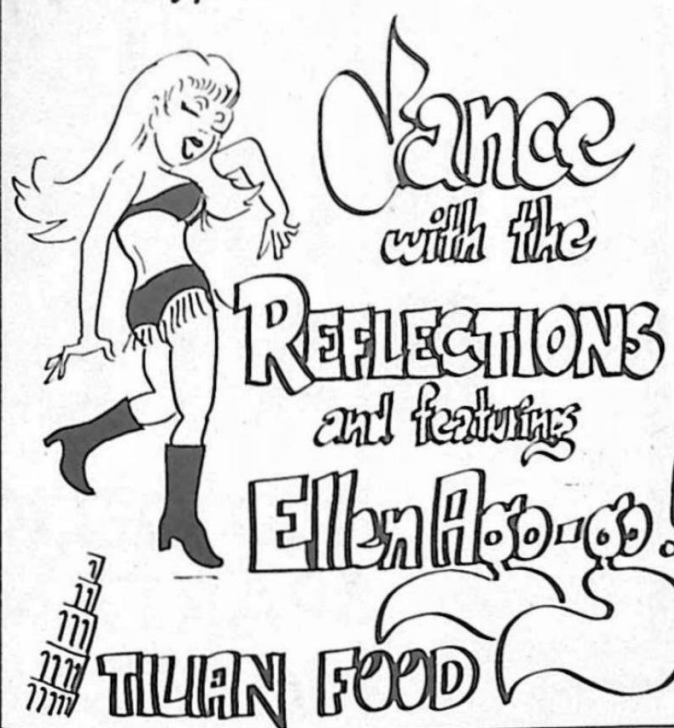 Dance
with the
REFLECTIONS
and featuring
Ellen Ago-go!
ITALIAN FOOD